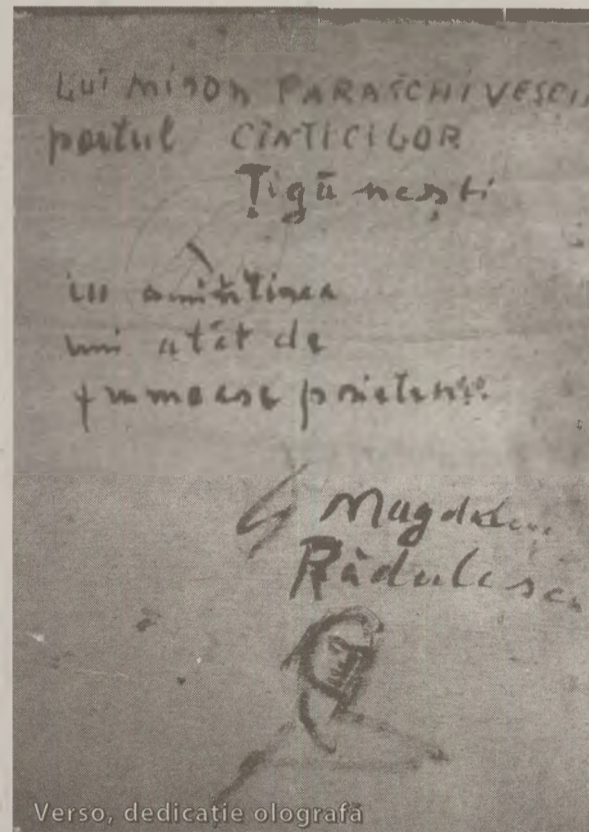 Lui Miron PARASCHIVESCU
poetul CÎNTICILOR
Țigănești
in amintirea
unei atât de
frumoase prietenii.
Magdalena
Rădulescu
Verso, dedicație olografă